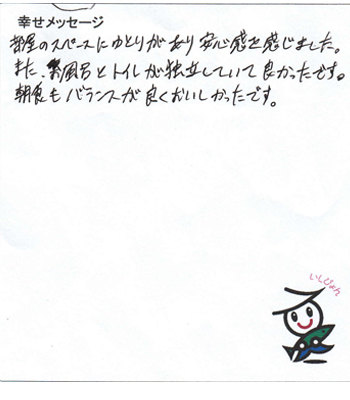 幸せメッセージ
部屋のスペースにゆとりがあり安心感を感じました。
また、お風呂とトイレが独立していて良かったです。
朝食もバランスが良くおいしかったです。